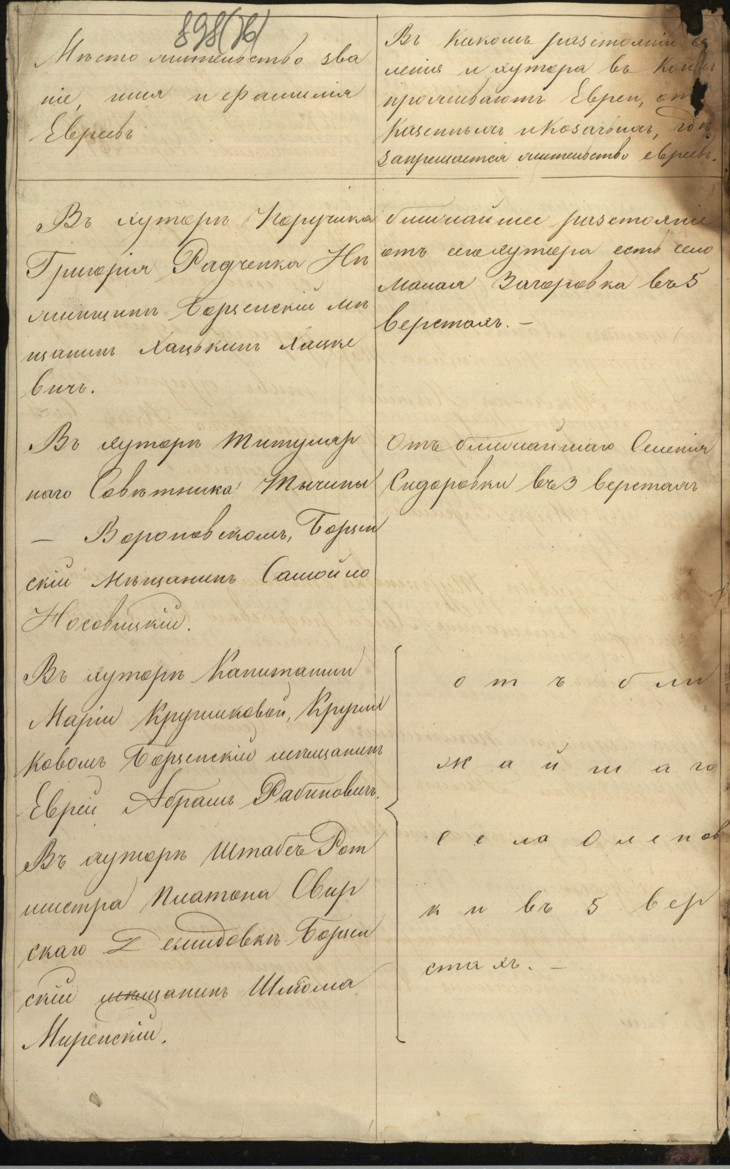 898(76)
Мѣсто жительство зва
ніе, имя и фамилія
Евреевъ
Въ какомъ разстояніи се
ленія и хутора въ коихъ
проживаютъ Евреи, отъ
казенныхъ и козачьихъ, гдѣ
запрещается жительство евреевъ.
Въ хуторѣ Поручика
Григорія Радченка
Борзенскій мѣ
щанинъ Хацкинъ Хацке
вичъ.
ближайшее разстояніе
отъ сего хутора есть село
Малая Загоровка въ 5
верстахъ. —
Въ хуторѣ Титуляр
наго Совѣтника Тычины
— Вороновскомъ, Борзен
скій Мѣщанинъ Самойло
Носовицкій.
Отъ ближайшаго Селенія
Сидоровки въ 3 верстахъ
Въ хуторѣ Капитанши
Маріи Крушиковой, Круши
ковомъ Борзенскій мѣщанинъ
Еврей Абрамъ Рабиновичъ.
Въ хуторѣ Штабсъ Рот
мистра Платона Свир
скаго Демидовкѣ Борзен
скій мѣщанинъ Шліома
Миренскій.
отъ бли
жайшаго
села Оленов
ки въ 5 вер
стахъ. —